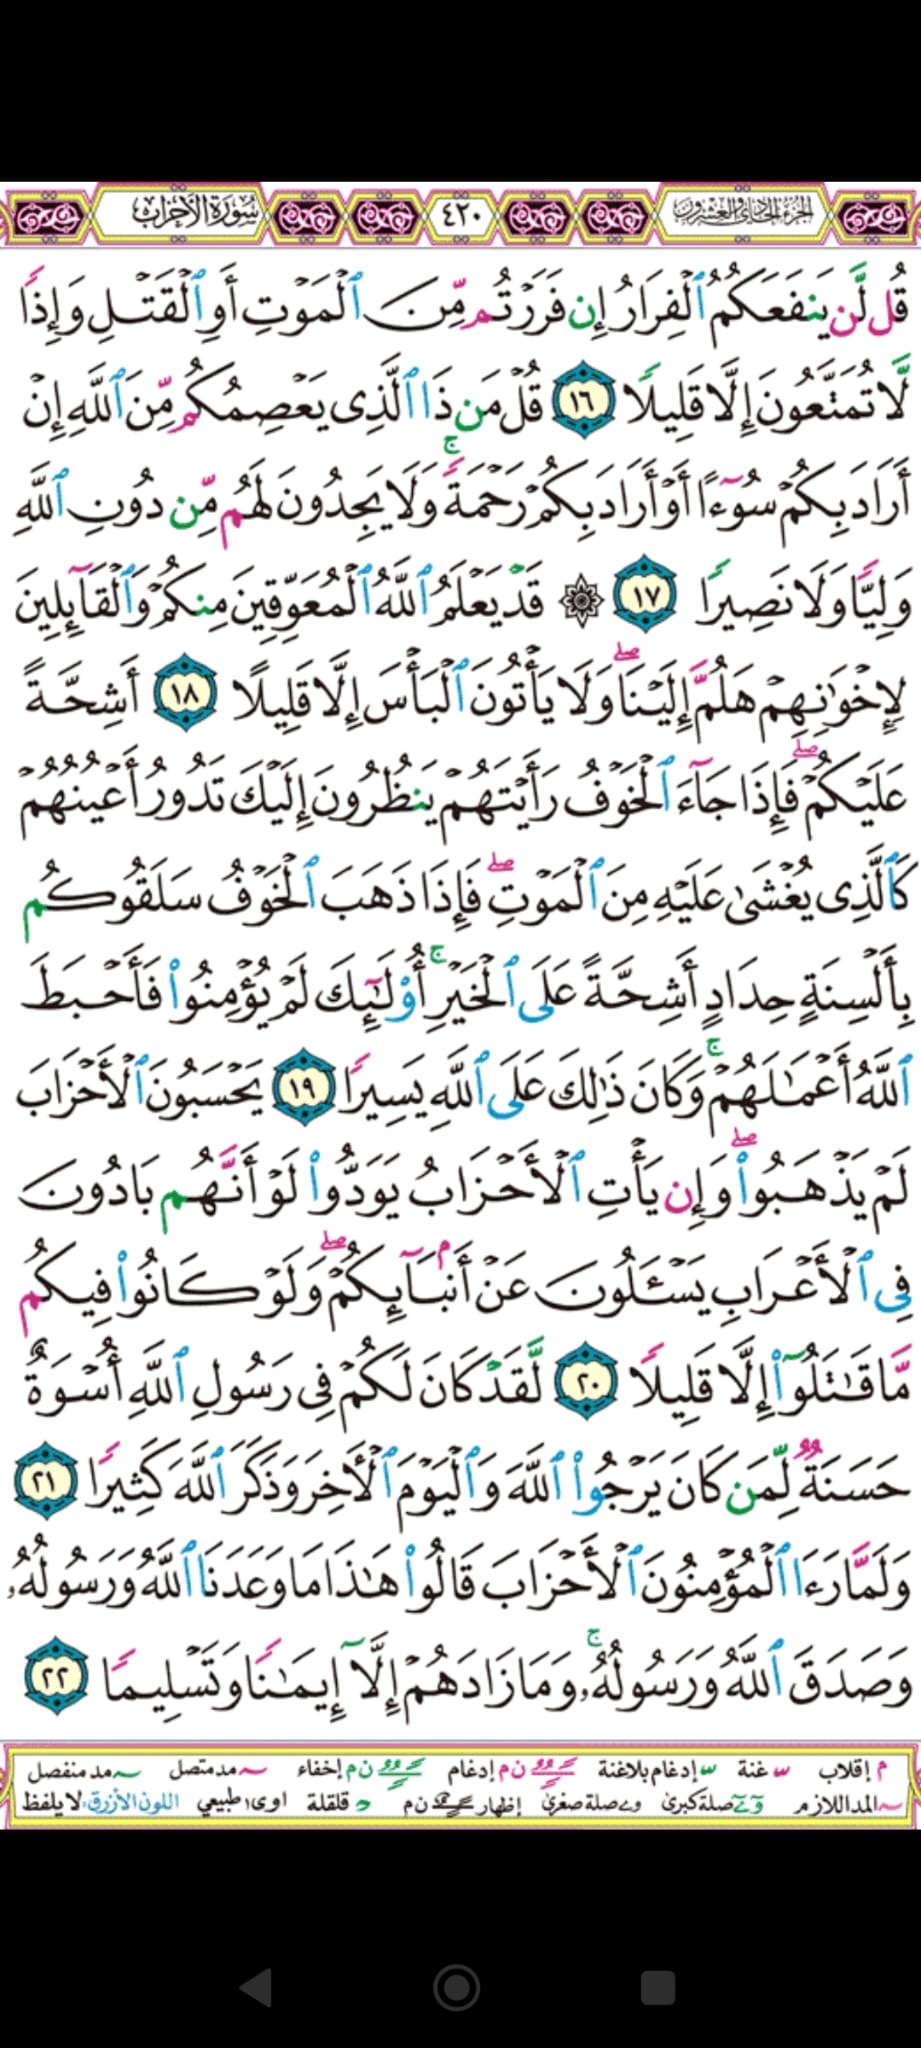 الجزء الحادي والعشرون
٤٢٠
سورة الأحزاب
قُل لَّن يَنفَعَكُمُ ٱلْفِرَارُ إِن فَرَرْتُم مِّنَ ٱلْمَوْتِ أَوِ ٱلْقَتْلِ وَإِذًا
لَّا تُمَتَّعُونَ إِلَّا قَلِيلًا ١٦ قُلْ مَن ذَا ٱلَّذِى يَعْصِمُكُم مِّنَ ٱللَّهِ إِنْ
أَرَادَ بِكُمْ سُوٓءًا أَوْ أَرَادَ بِكُمْ رَحْمَةً ۚ وَلَا يَجِدُونَ لَهُم مِّن دُونِ ٱللَّهِ
وَلِيًّا وَلَا نَصِيرًا ١٧ ۞ قَدْ يَعْلَمُ ٱللَّهُ ٱلْمُعَوِّقِينَ مِنكُمْ وَٱلْقَآئِلِينَ
لِإِخْوَٰنِهِمْ هَلُمَّ إِلَيْنَا ۖ وَلَا يَأْتُونَ ٱلْبَأْسَ إِلَّا قَلِيلًا ١٨ أَشِحَّةً
عَلَيْكُمْ ۖ فَإِذَا جَآءَ ٱلْخَوْفُ رَأَيْتَهُمْ يَنظُرُونَ إِلَيْكَ تَدُورُ أَعْيُنُهُمْ
كَٱلَّذِى يُغْشَىٰ عَلَيْهِ مِنَ ٱلْمَوْتِ ۖ فَإِذَا ذَهَبَ ٱلْخَوْفُ سَلَقُوكُم
بِأَلْسِنَةٍ حِدَادٍ أَشِحَّةً عَلَى ٱلْخَيْرِ ۚ أُو۟لَٰٓئِكَ لَمْ يُؤْمِنُوا۟ فَأَحْبَطَ
ٱللَّهُ أَعْمَٰلَهُمْ ۚ وَكَانَ ذَٰلِكَ عَلَى ٱللَّهِ يَسِيرًا ١٩ يَحْسَبُونَ ٱلْأَحْزَابَ
لَمْ يَذْهَبُوا۟ ۖ وَإِن يَأْتِ ٱلْأَحْزَابُ يَوَدُّوا۟ لَوْ أَنَّهُم بَادُونَ
فِى ٱلْأَعْرَابِ يَسْـَٔلُونَ عَنْ أَنۢبَآئِكُمْ ۖ وَلَوْ كَانُوا۟ فِيكُم
مَّا قَٰتَلُوٓا۟ إِلَّا قَلِيلًا ٢٠ لَّقَدْ كَانَ لَكُمْ فِى رَسُولِ ٱللَّهِ أُسْوَةٌ
حَسَنَةٌ لِّمَن كَانَ يَرْجُوا۟ ٱللَّهَ وَٱلْيَوْمَ ٱلْأَخِرَ وَذَكَرَ ٱللَّهَ كَثِيرًا ٢١
وَلَمَّا رَءَا ٱلْمُؤْمِنُونَ ٱلْأَحْزَابَ قَالُوا۟ هَٰذَا مَا وَعَدَنَا ٱللَّهُ وَرَسُولُهُۥ
وَصَدَقَ ٱللَّهُ وَرَسُولُهُۥ ۚ وَمَا زَادَهُمْ إِلَّآ إِيمَٰنًا وَتَسْلِيمًا ٢٢
م إقلاب غنة إدغام بلاغنة ن م إدغام ن م إخفاء مد متصل مد منفصل
المد اللازم صلة كبرى صلة صغرى إظهار ن م قلقلة اوى طبيعي اللون الأزرق لا يلفظ